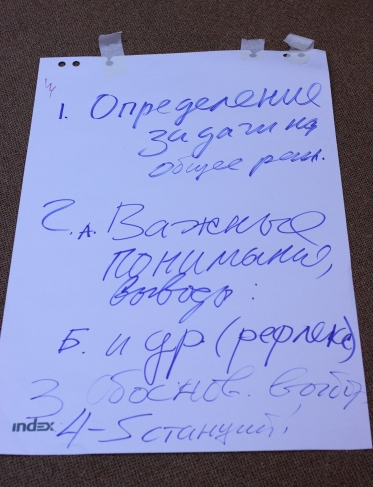 1. Определение
задачи на
общее реш.
2. А. Важные
понимания,
выводы:
Б. и др (рефлекс)
3 Обоснов. выбр
index
4-5 станций!